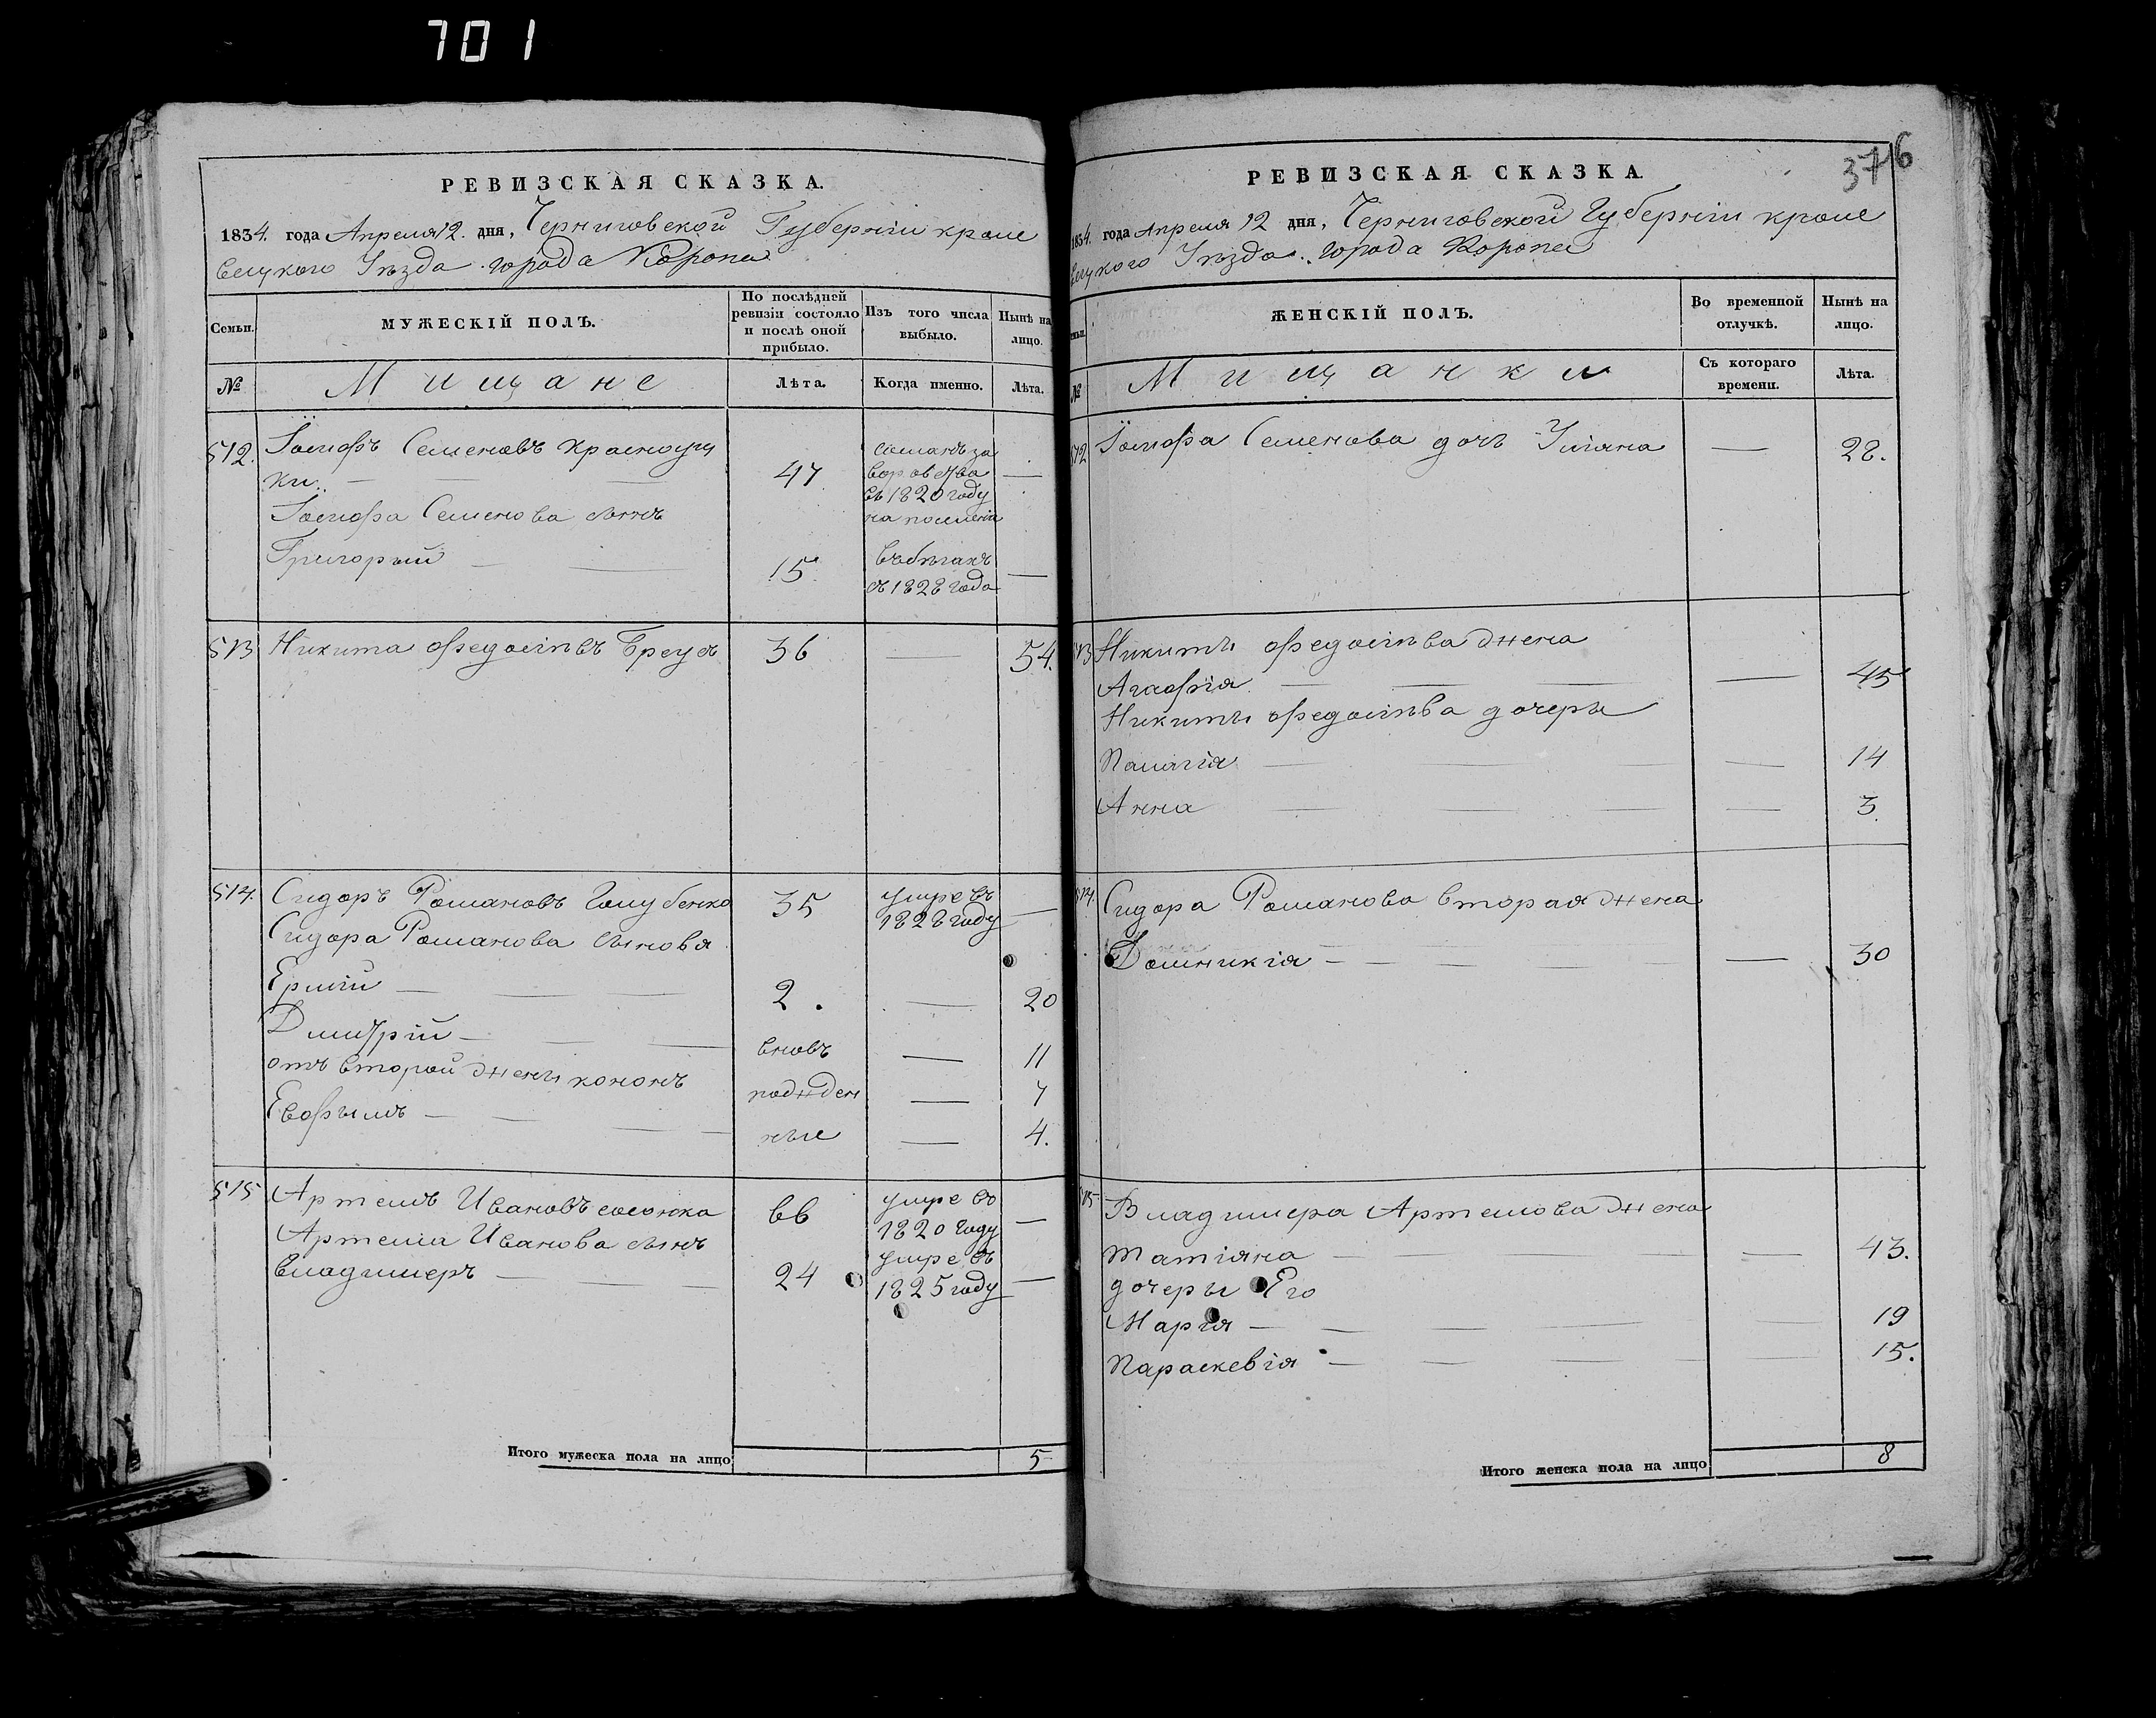 701
РЕВИЗСКАЯ СКАЗКА.
1834. года Апреля 12. дня, Черниговской Губерніи кроле
вецкого Уѣзда города Коропа
Семьи.
МУЖЕСКІЙ ПОЛЪ.
По послѣдней
ревизіи состояло
и послѣ оной
прибыло.
Изъ того числа
выбыло.
Нынѣ на
лицо.
№
Мищане
Лѣта.
Когда именно.
Лѣта.
512. Іосифъ Семеновъ Красноущ
ки — 47 сосланъ за
воровства
въ 1820 году
на
Іосифа Семенова сынъ
Григорый — 15 въбѣгахъ —
съ 1828 года
513 Никита Федосіѣвъ Бреусъ 36 — 54.
514. Сидоръ Романовъ Голубенко 35 умре въ —
1828 году
Сидора Романова сыновя
Ермій — 2. — 20
Дмитрій — вновь — 11
отъ второй жены кононъ рожден — 7
Евфымъ — ные — 4.
515 Артемъ Ивановъ сосонка 66 умре въ —
1820 году
Артема Иванова сынъ
владимеръ — 24 умре въ —
1825 году
Итого мужеска пола на лицо 5
376
РЕВИЗСКАЯ СКАЗКА.
1834. года Апреля 12 дня, Черниговской Губерніи кроле
вецкого Уѣзда. города Коропа
Семьи.
ЖЕНСКІЙ ПОЛЪ.
Во временной
отлучкѣ.
Нынѣ на
лицо.
№
Мищанки
Съ котораго
времени.
Лѣта.
512 Іосифа Семенова дочь Уліяна — 28.
513 Никиты Федосіѣва жена
Агафія — 45
Никиты Федосіѣва дочеры
Палагія — 14
Анна — 3.
514. Сидора Романова вторая жена
Домникія — 30
515 Владимера Артемова жена
татіяна — 43.
дочеры Его
Марія — 19
Параскевія — 15.
Итого женска пола на лицо 8